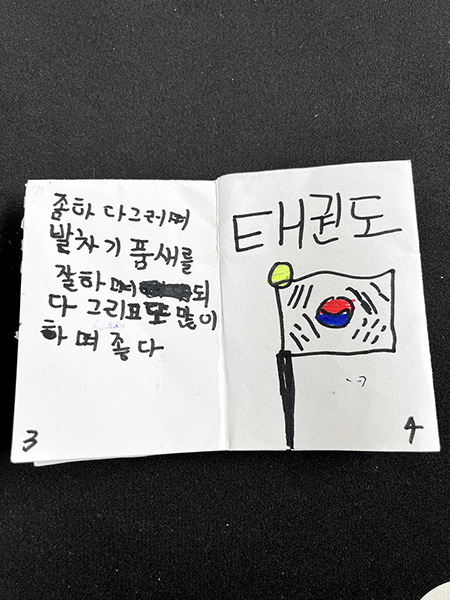 좀하다그러며
발차기 품새를
잘하며 되
다 그리고 또 많이
하며 좋다
3
태권도
4